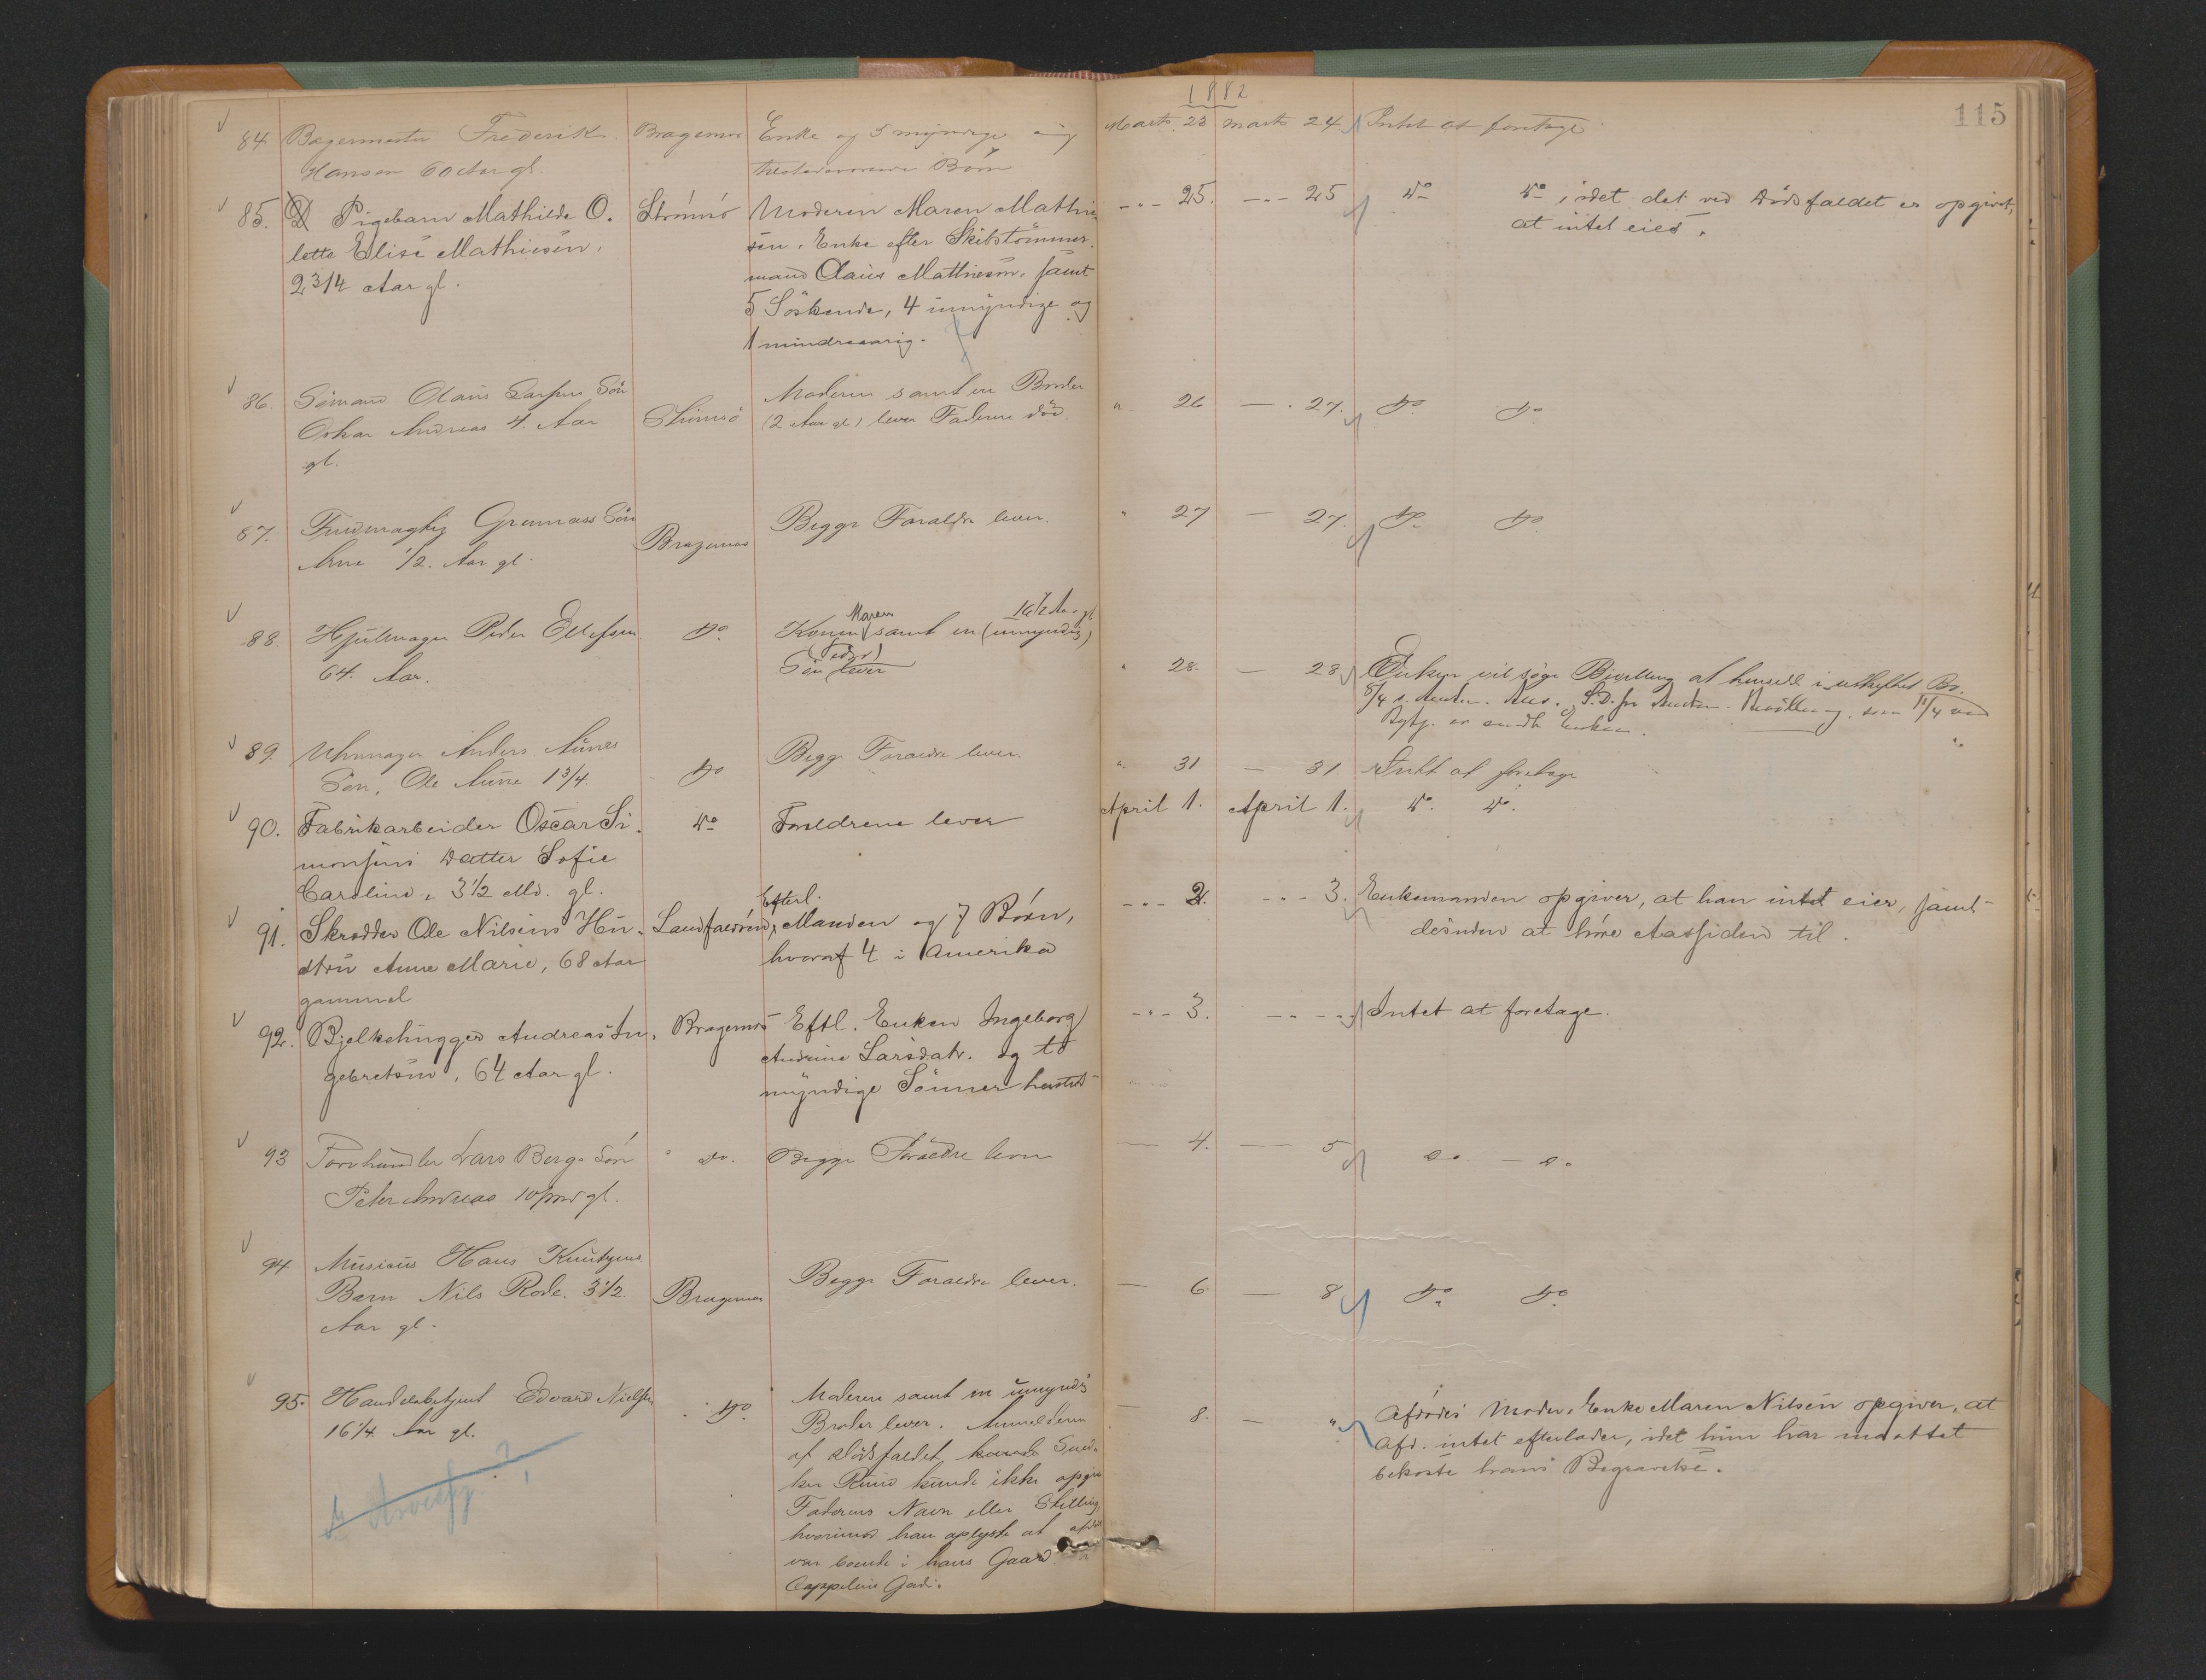 1882
115
84 Bagermester Frederik Bragernes Enke og 5 myndige og Marts 23 Marts 24 Intet at foretage
Hansen 60 Aar gl. tilstedeværende Børn
85. Pigebarn Mathilde O. Strömsö Moderen Maren Mathie -"- 25. -"- 25 do do, idet det ved Dödsfaldet er opgivet,
lette Elise Mathiesen, sen, Enke efter Skibstömmer at intet eies.
2 3/4 Aar gl. mand Claus Mathiesen, samt
5 Söskende, 4 umyndige og
1 mindreaarig.
86. Sömand Olaus Larsens Sön Strömsö Moderen samt en Broder " 26 — 27. do do
Oskar Andreas 4. Aar (2 Aar gl) lever Faderen död.
gl.
87. Sön Bragernes Begge Forældre lever. " 27 — 27. do do
Arne 1/2. Aar gl.
88. Hjulmager Peder Ellefsen do. Konen Maren samt en (umyndig) 16 1/2 Aar gl.
64. Aar. Sön (Peder) lever " 28. — 28 Enken vil søge Bevilling at hensidde i uskiftet Bo.
8/4 11/4
er sendt Enken.
89. Uhrmager Anders Aunes do Begge Forældre lever. " 31 — 31 Intet at foretage
Sön, Ole Aune 1 3/4.
90. Fabrikarbeider Oscar Si- do Forældrene lever April 1. April 1. do. do.
monsens Datter Sofie
Caroline, 3 1/2 Md. gl.
91. Skrædder Ole Nilsens Hu- Landfaldöen, Efterl. Manden og 7 Börn, -"- 2. -"- 3. Enkemanden opgiver, at han intet eier, samt
stru Anne Marie, 68 Aar hvoraf 4 i Amerika desuden at höre Aassiden til.
gammel
92. Bjelkehugger Andreas In- Bragernes Eftl. Enken Ingeborg -"- 3. -"- Intet at foretage.
gebretsen, 64 Aar gl. Andrine Larsdatr. og to
myndige Sönner hersteds
93 Torvhandler Lars Bergs Sön " do. Begge Forældre lever — 4. — 5 do. — do.
Peter Andreas 10 Md gl.
94 Musicus Hans Knutzens Bragernes Begge Forældre lever. — 6 — 8 do do
Barn Nils Rode. 3 1/2
Aar gl.
95. Handelsbetjent Edvard Nielsen do. Moderen samt en umyndig — 8. — " Afdödes Moder, Enke Maren Nilsen opgiver, at
16 1/4 Aar gl. Broder lever. Anmelderen Afd. intet efterlader, idet hun har maattet
af Dödsfaldet Sned- bekoste hans Begravelse.
ker kunde ikke opgive
Faderens Navn eller Stilling,
hvorimod han oplyste at afdöde
var boende i hans Gaard
Cappelens Gade.